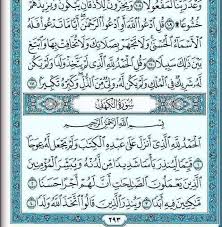 وَعْدُ رَبِّنَا لَمَفْعُولًا ۝١٠٨ وَيَخِرُّونَ لِلْأَذْقَانِ يَبْكُونَ وَيَزِيدُهُمْ
خُشُوعًا ۩ ۝١٠٩ قُلِ ٱدْعُوا۟ ٱللَّهَ أَوِ ٱدْعُوا۟ ٱلرَّحْمَٰنَ أَيًّا مَّا تَدْعُوا۟ فَلَهُ
ٱلْأَسْمَآءُ ٱلْحُسْنَىٰ وَلَا تَجْهَرْ بِصَلَاتِكَ وَلَا تُخَافِتْ بِهَا وَٱبْتَغِ
بَيْنَ ذَٰلِكَ سَبِيلًا ۝١١٠ وَقُلِ ٱلْحَمْدُ لِلَّهِ ٱلَّذِى لَمْ يَتَّخِذْ وَلَدًا وَلَمْ يَكُن
لَّهُۥ شَرِيكٌ فِى ٱلْمُلْكِ وَلَمْ يَكُن لَّهُۥ وَلِىٌّ مِّنَ ٱلذُّلِّ وَكَبِّرْهُ تَكْبِيرًۢا ۝١١١
سُورَةُ الكَهْفِ
بِسْمِ ٱللَّهِ ٱلرَّحْمَٰنِ ٱلرَّحِيمِ
ٱلْحَمْدُ لِلَّهِ ٱلَّذِىٓ أَنزَلَ عَلَىٰ عَبْدِهِ ٱلْكِتَٰبَ وَلَمْ يَجْعَل لَّهُۥ عِوَجَا ۝١
قَيِّمًا لِّيُنذِرَ بَأْسًا شَدِيدًا مِّن لَّدُنْهُ وَيُبَشِّرَ ٱلْمُؤْمِنِينَ
ٱلَّذِينَ يَعْمَلُونَ ٱلصَّٰلِحَٰتِ أَنَّ لَهُمْ أَجْرًا حَسَنًا ۝٢
مَّٰكِثِينَ فِيهِ أَبَدًا ۝٣ وَيُنذِرَ ٱلَّذِينَ قَالُوا۟ ٱتَّخَذَ ٱللَّهُ وَلَدًا ۝٤
٢٩٣